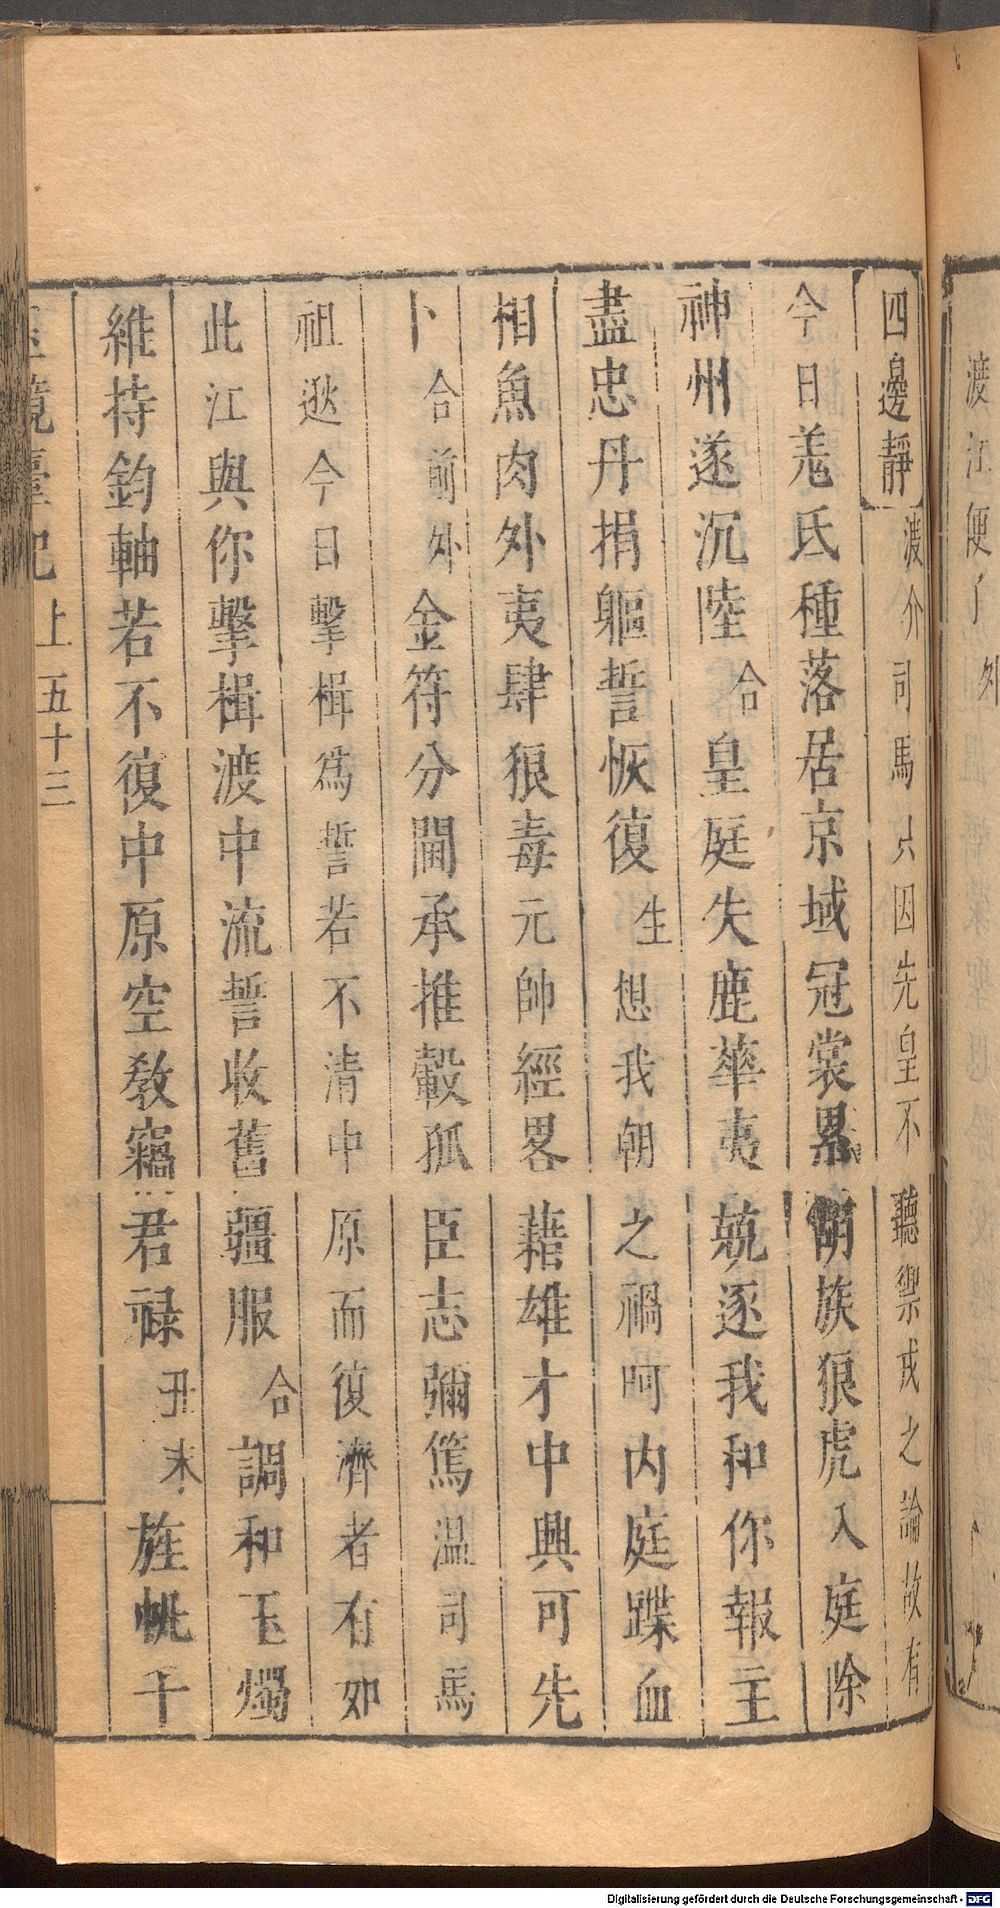 渡江便了 外
四邊靜 渡介司馬只因先皇不聽禦戎之論故有
今日羗氏種落居京域冠裳累胡族狼虎入庭除
神州遂沉陸合皇庭失鹿華夷競逐我和你報主
盡忠丹捐軀誓恢復生想我朝之禍呵内庭蹀血
相魚肉外夷肆狼毒元帥經畧藉雄才中興可先
卜合前外金符分閫承推轂孤臣志彌篤温司馬
祖逖今日擊楫爲誓若不清中原而復濟者有如
此江與你擊楫渡中流誓收舊疆服合調和玉燭
維持鈞軸若不復中原空教竊君禄丑末旌帆千
玉鏡臺記 上 五十三
Digitalisierung gefördert durch die Deutsche Forschungsgemeinschaft - DFG